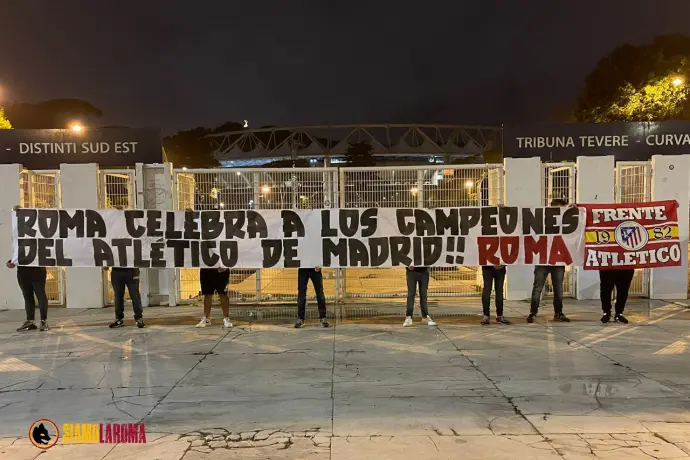 - DISTINTI SUD EST
TRIBUNA TEVERE - CURVA
ROMA CELEBRA A LOS CAMPEONES
DEL ATLÉTICO DE MADRID!! ROMA
FRENTE
1982
ATLETICO
SIAMOLAROMA